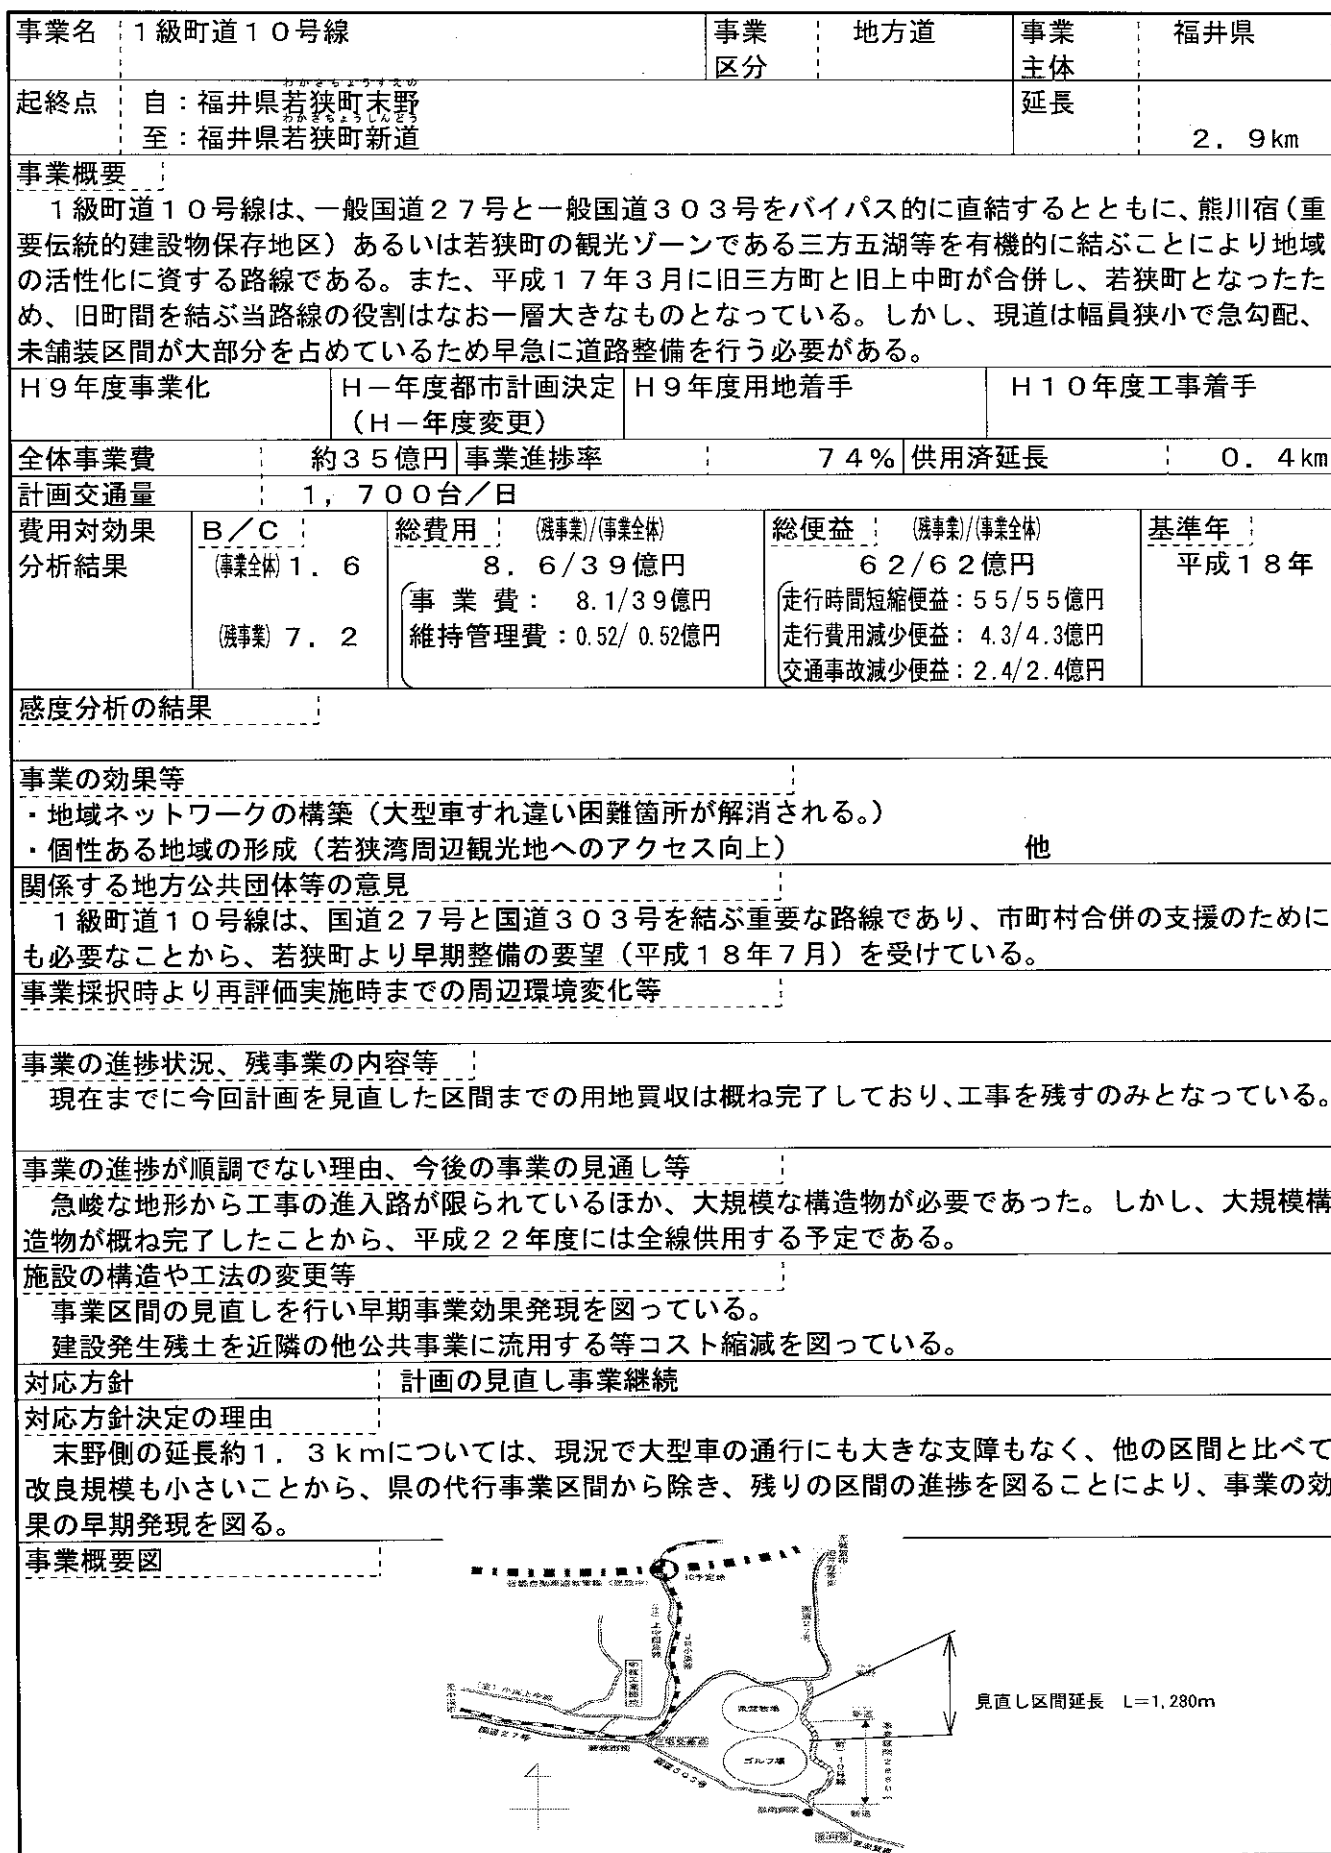 事業名 1級町道10号線 事業区分 地方道 事業主体 福井県
わかさちょうすえの
起終点 自：福井県若狭町末野 延長
わかさちょうしんどう
至：福井県若狭町新道 2．9km
事業概要
1級町道10号線は、一般国道27号と一般国道303号をバイパス的に直結するとともに、熊川宿（重
要伝統的建設物保存地区）あるいは若狭町の観光ゾーンである三方五湖等を有機的に結ぶことにより地域
の活性化に資する路線である。また、平成17年3月に旧三方町と旧上中町が合併し、若狭町となったた
め、旧町間を結ぶ当路線の役割はなお一層大きなものとなっている。しかし、現道は幅員狭小で急勾配、
未舗装区間が大部分を占めているため早急に道路整備を行う必要がある。
H9年度事業化 H－年度都市計画決定 H9年度用地着手 H10年度工事着手
（H－年度変更）
全体事業費 約35億円 事業進捗率 74% 供用済延長 0．4km
計画交通量 1，700台／日
費用対効果 B／C 総費用 (残事業)/(事業全体) 総便益 (残事業)/(事業全体) 基準年
分析結果 (事業全体) 1．6 8．6/39億円 62/62億円 平成18年
事 業 費： 8.1/39億円 走行時間短縮便益：55/55億円
(残事業) 7．2 維持管理費：0.52/ 0.52億円 走行費用減少便益： 4.3/4.3億円
交通事故減少便益：2.4/2.4億円
感度分析の結果
事業の効果等
・地域ネットワークの構築（大型車すれ違い困難箇所が解消される。）
・個性ある地域の形成（若狭湾周辺観光地へのアクセス向上） 他
関係する地方公共団体等の意見
1級町道10号線は、国道27号と国道303号を結ぶ重要な路線であり、市町村合併の支援のために
も必要なことから、若狭町より早期整備の要望（平成18年7月）を受けている。
事業採択時より再評価実施時までの周辺環境変化等
事業の進捗状況、残事業の内容等
現在までに今回計画を見直した区間までの用地買収は概ね完了しており、工事を残すのみとなっている。
事業の進捗が順調でない理由、今後の事業の見通し等
急峻な地形から工事の進入路が限られているほか、大規模な構造物が必要であった。しかし、大規模構
造物が概ね完了したことから、平成22年度には全線供用する予定である。
施設の構造や工法の変更等
事業区間の見直しを行い早期事業効果発現を図っている。
建設発生残土を近隣の他公共事業に流用する等コスト縮減を図っている。
対応方針 計画の見直し事業継続
対応方針決定の理由
末野側の延長約1．3kmについては、現況で大型車の通行にも大きな支障もなく、他の区間と比べて
改良規模も小さいことから、県の代行事業区間から除き、残りの区間の進捗を図ることにより、事業の効
果の早期発現を図る。
事業概要図
IC予定地
見直し区間延長 L=1,280m
国道27号
ゴルフ場
国道303号
新道